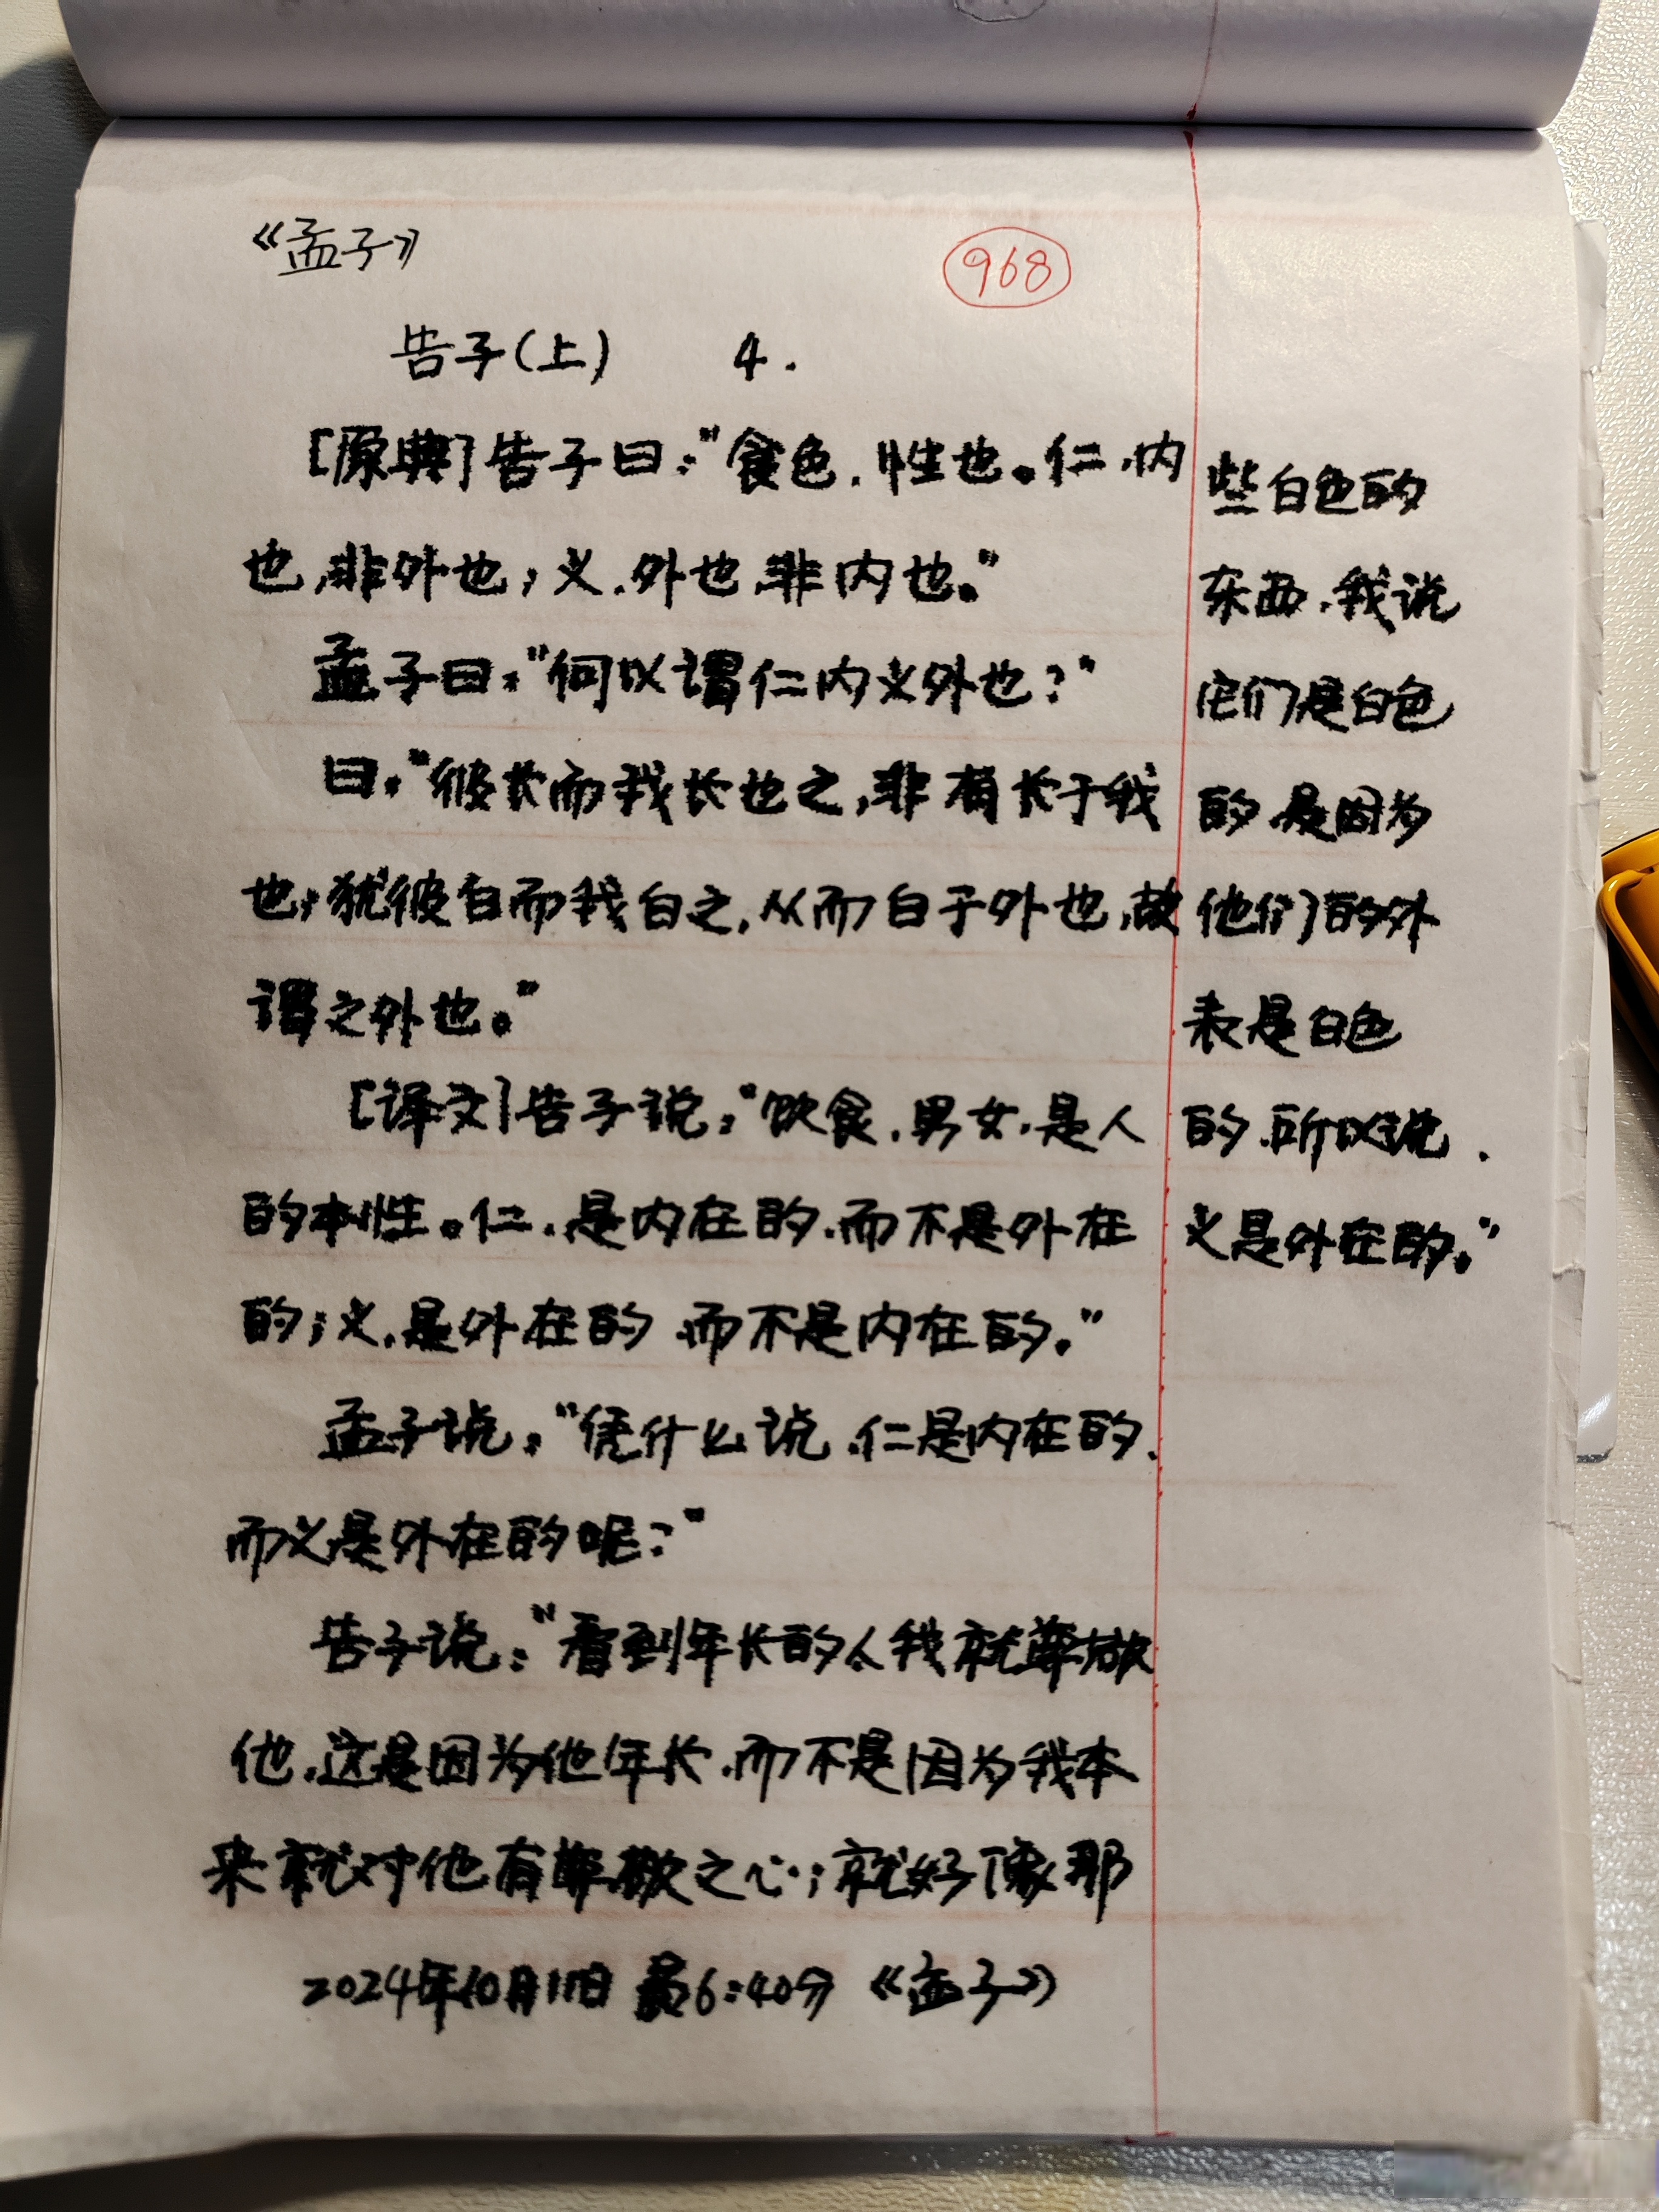 《孟子》
968
告子(上) 4.
[原典]告子曰:"食色,性也。仁,内
也,非外也;义,外也,非内也。"
孟子曰:"何以谓仁内义外也?"
曰:"彼长而我长也之,非有长于我
也;犹彼白而我白之,从而白于外也,故
谓之外也。"
[译文]告子说:"饮食,男女,是人
的本性。仁,是内在的,而不是外在
的;义,是外在的,而不是内在的。"
孟子说:"凭什么说,仁是内在的,
而义是外在的呢?"
告子说:"看到年长的人我就尊敬
他,这是因为他年长,而不是因为我本
来就对他有尊敬之心;就好像那
些白色的
东西,我说
它们是白色
的,是因为
他们的外
表是白色
的,所以说,
义是外在的。"
2024年10月11日 晨6:40分 《孟子》